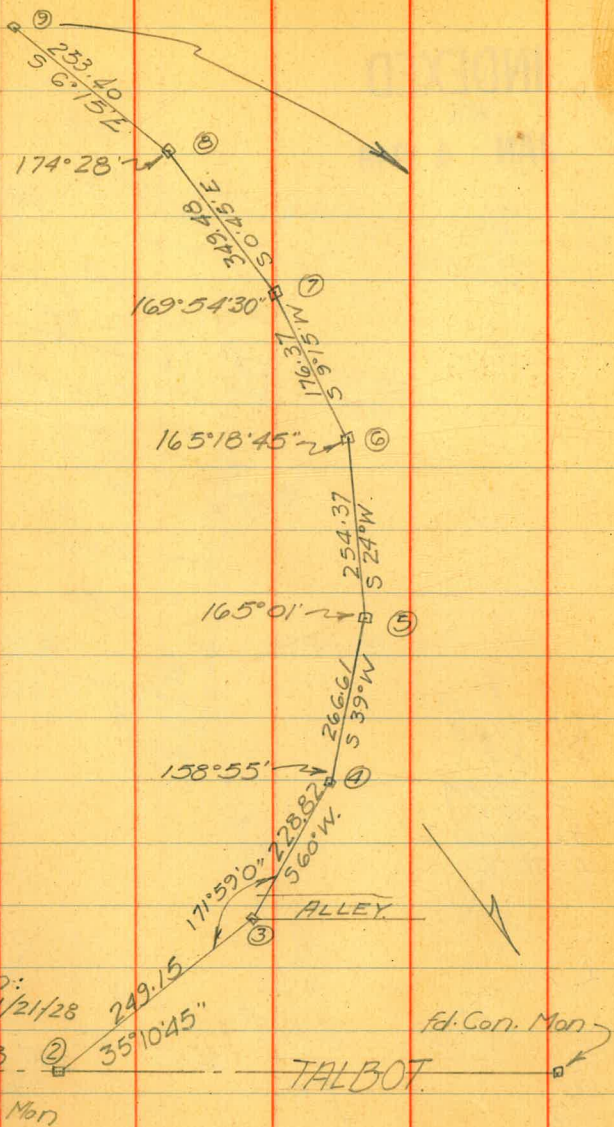 ⑨
253.40
S 6°15'E
174°28'
⑧
349.48
S 0°45'E
169°54'30"
⑦
176.37
S 9°15'W
165°18'45"
⑥
254.37
S 24°W.
165°01'
⑤
266.61
S 39°W
158°55'
④
228.82
S 60°W.
171°59'0"
ALLEY
③
249.15
35°10'45"
/21/28
②
TALBOT
fd. Con. Mon
Mon
INDEXED